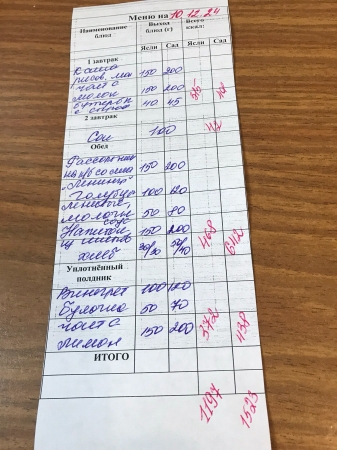 Меню на 10.12.24
Наименование блюд
Выход блюд (г)
Всего ккал:
Ясли Сад Ясли Сад
1 завтрак
Каша
рисов. мол 150 200
чай с
молок 150 200
бутерброд
с сыром 40 45
2 завтрак
Сок 100 42
Обед
Рассольник
на к/б со см 150 200
"Ленингр"
Голубцы 100 120
ленивые,
молочн соус 50 80
Напиток 150 200 468 642
из шипов
хлеб
Уплотнённый полдник
Винегрет 100 120
Булочка 50 70
чай с 372 438
лимон 150 200
ИТОГО
1197 1523